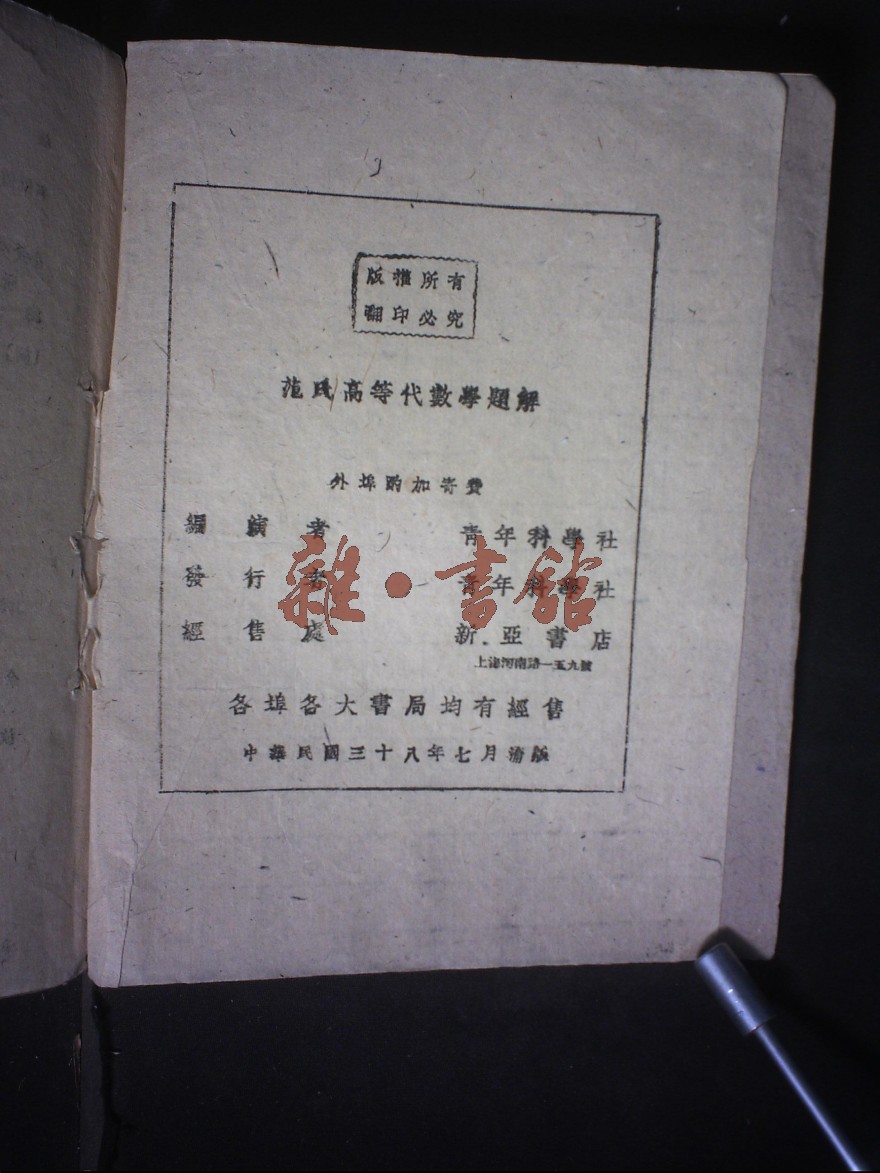 版權所有
翻印必究
范氏高等代數學題解
外埠酌加寄費
編演者 青年科學社
發行者 青年科學社
經售處 新亞書店
上海河南路一五九號
各埠各大書局均有經售
中華民國三十八年七月滬版
雜·書館